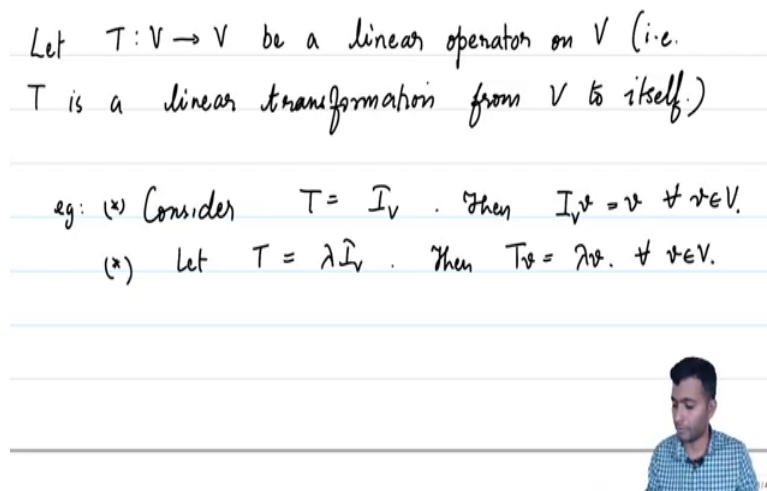 Let T : V → V be a linear operator on V (i.e.
T is a linear transformation from V to itself.)
eg: (*) Consider T = I_V . Then I_V v = v ∀ v ∈ V.
(*) Let T = λI_V . Then Tv = λv. ∀ v ∈ V.